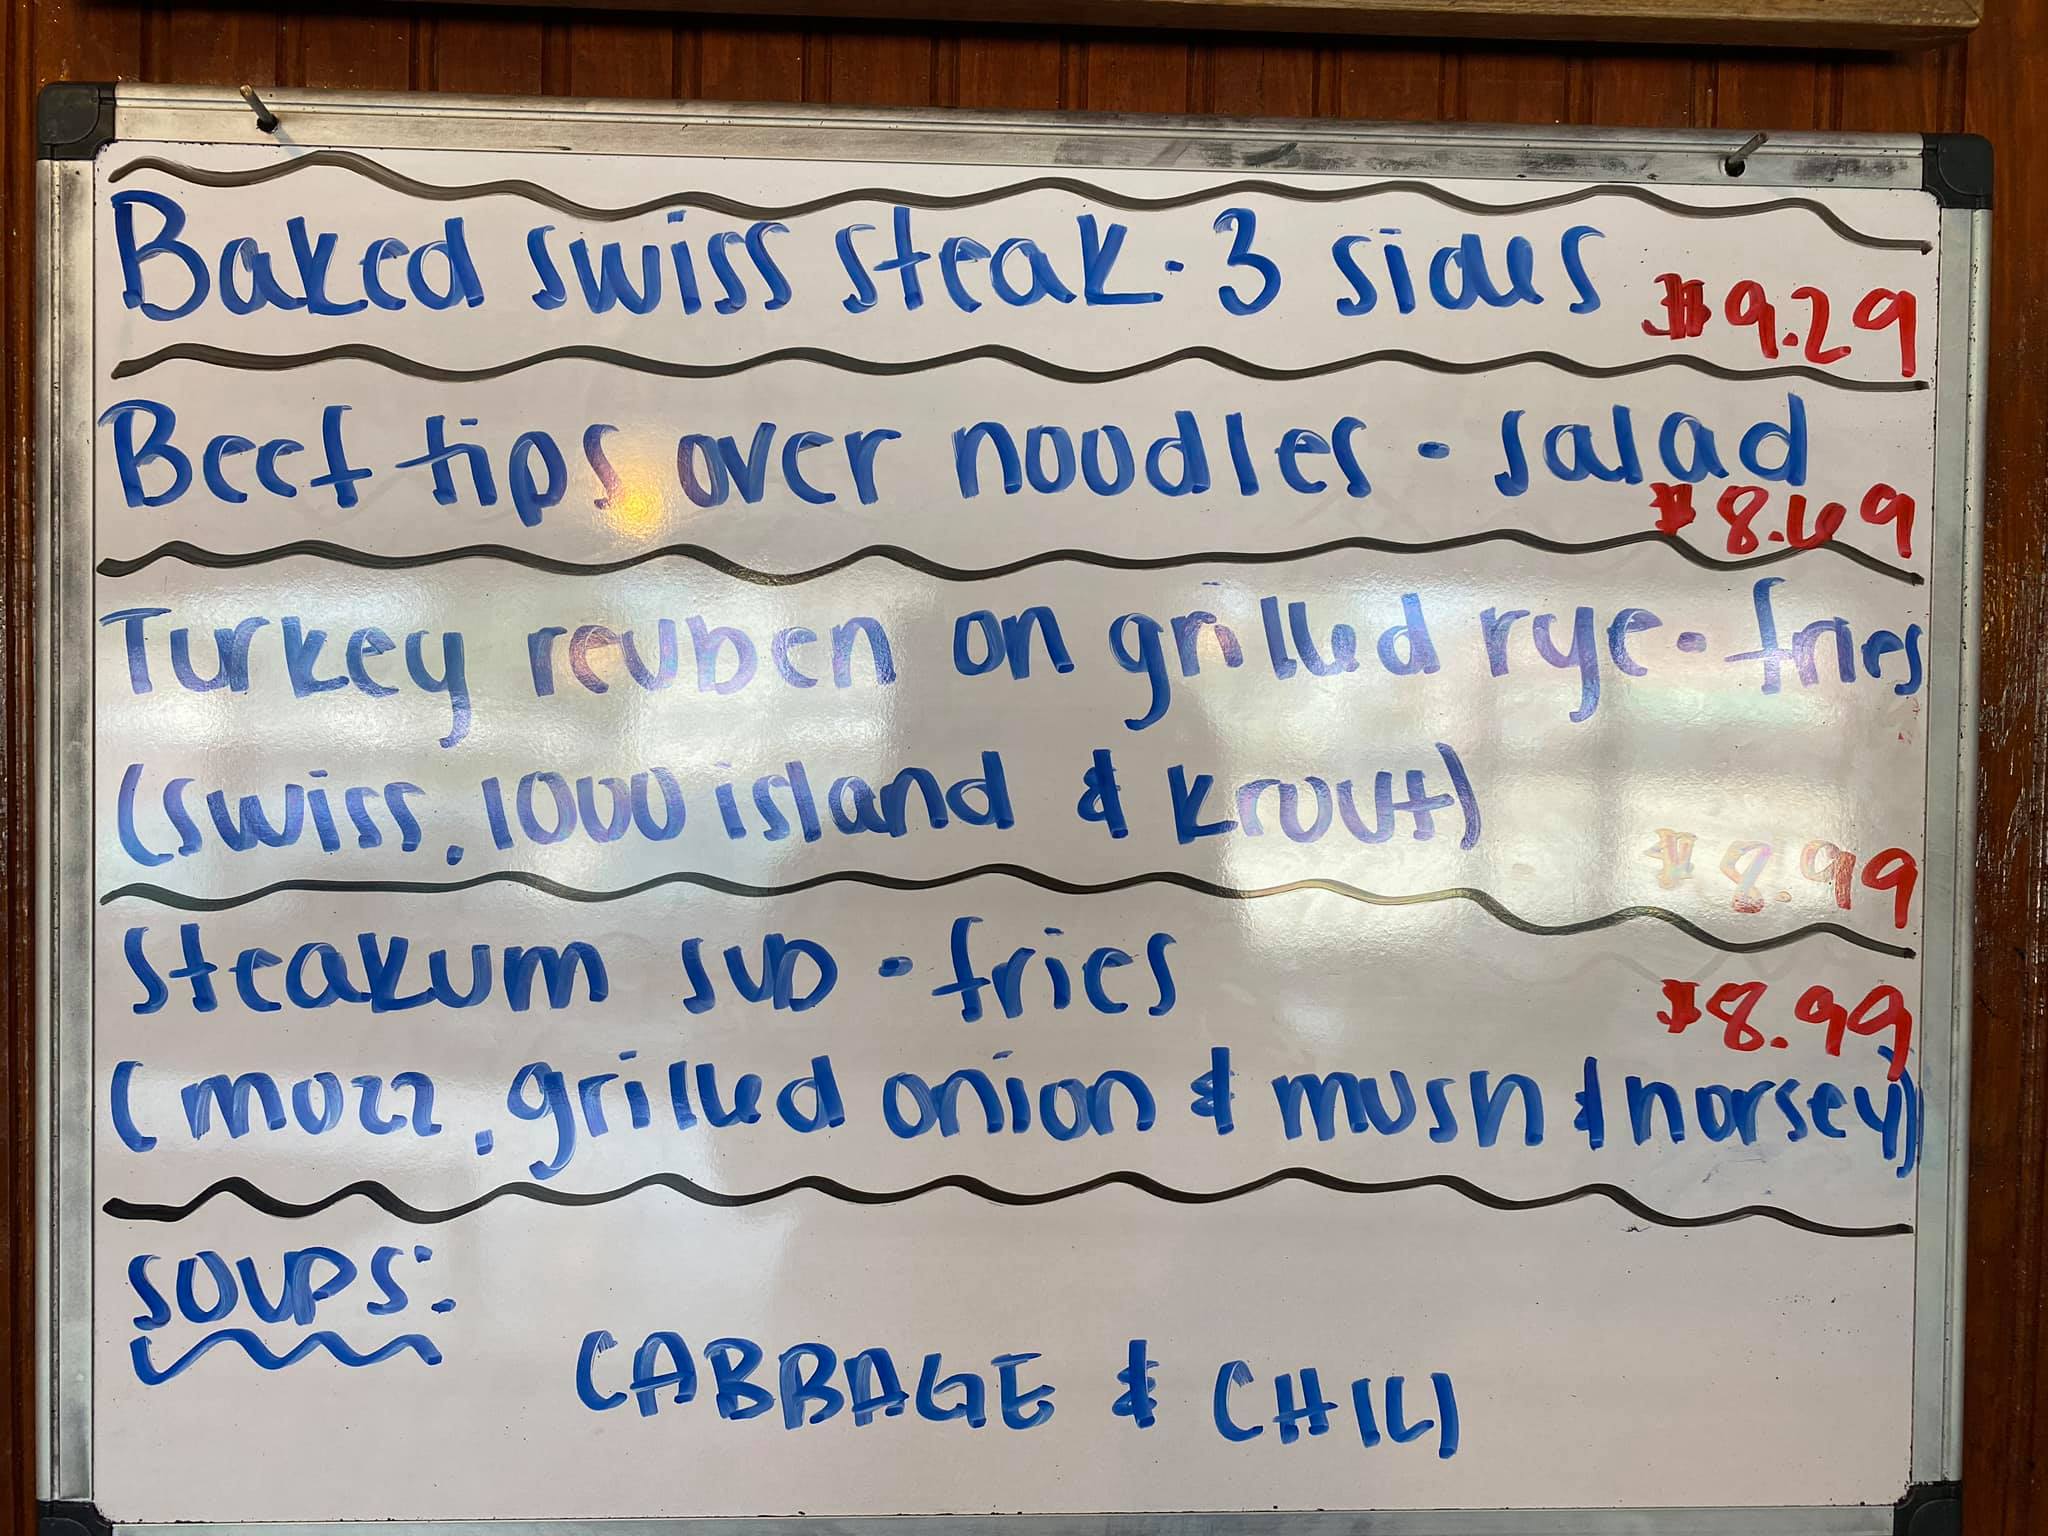 Baked swiss steak - 3 sides $9.29
Beef tips over noodles - salad
$8.69
Turkey reuben on grilled rye - fries
(swiss, 1000 island & krout)
$8.99
Steakum sub - fries
$8.99
(mozz, grilled onion & mush & horsey)
SOUPS:
CABBAGE & CHILI